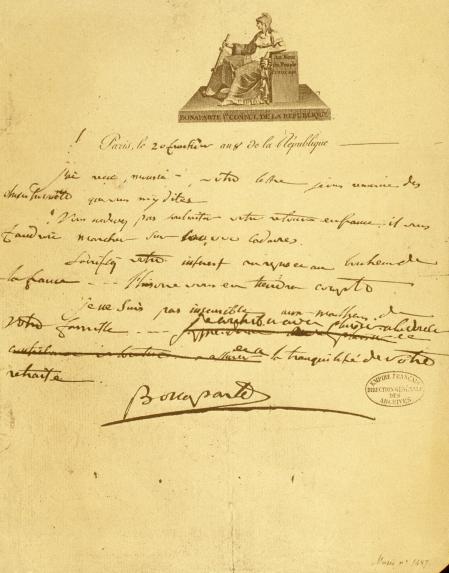 Au Nom
du Peuple
Français
BONAPARTE 1er CONSUL DE LA REPUBLIQUE
Paris, le 20 fructidor an 8 de la République
J'ai reçu, monsieur, votre lettre je vous remercie des
que vous m'y dites
Vous ne devez pas souhaiter votre retour en france. il vous
faudroit marcher sur 100,000 cadavres.
votre interest au repos au bonheur de
la france --- l'histoire vous en tiendra compte
Je ne suis pas insensible aux malheurs de
votre famille ---
assurer la tranquilité de votre
retraite
Bonaparte
EMPIRE FRANÇAIS
DIRECTION GÉNÉRALE
DES
ARCHIVES
Musée n° 1487